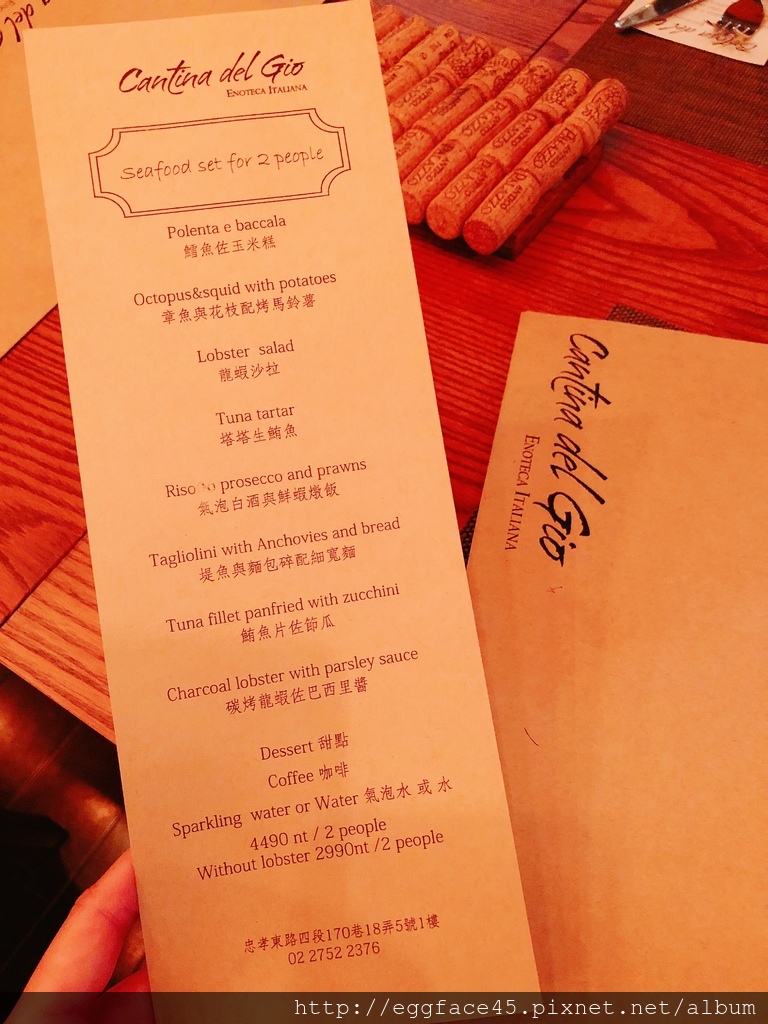 Cantina del Gio
ENOTECA ITALIANA
Seafood set for 2 people
Polenta e baccala
鱈魚佐玉米糕
Octopus&squid with potatoes
章魚與花枝配烤馬鈴薯
Lobster salad
龍蝦沙拉
Tuna tartar
塔塔生鮪魚
prosecco and prawns
氣泡白酒與鮮蝦燉飯
Tagliolini with Anchovies and bread
堤魚與麵包碎配細寬麵
Tuna fillet panfried with zucchini
鮪魚片佐節瓜
Charcoal lobster with parsley sauce
碳烤龍蝦佐巴西里醬
Dessert 甜點
Coffee 咖啡
Sparkling water or Water 氣泡水 或 水
4490 nt / 2 people
Without lobster 2990nt /2 people
忠孝東路四段170巷18弄5號1樓
02 2752 2376
Cantina del Gio
ENOTECA ITALIANA
http://eggface45.pixnet.net/album